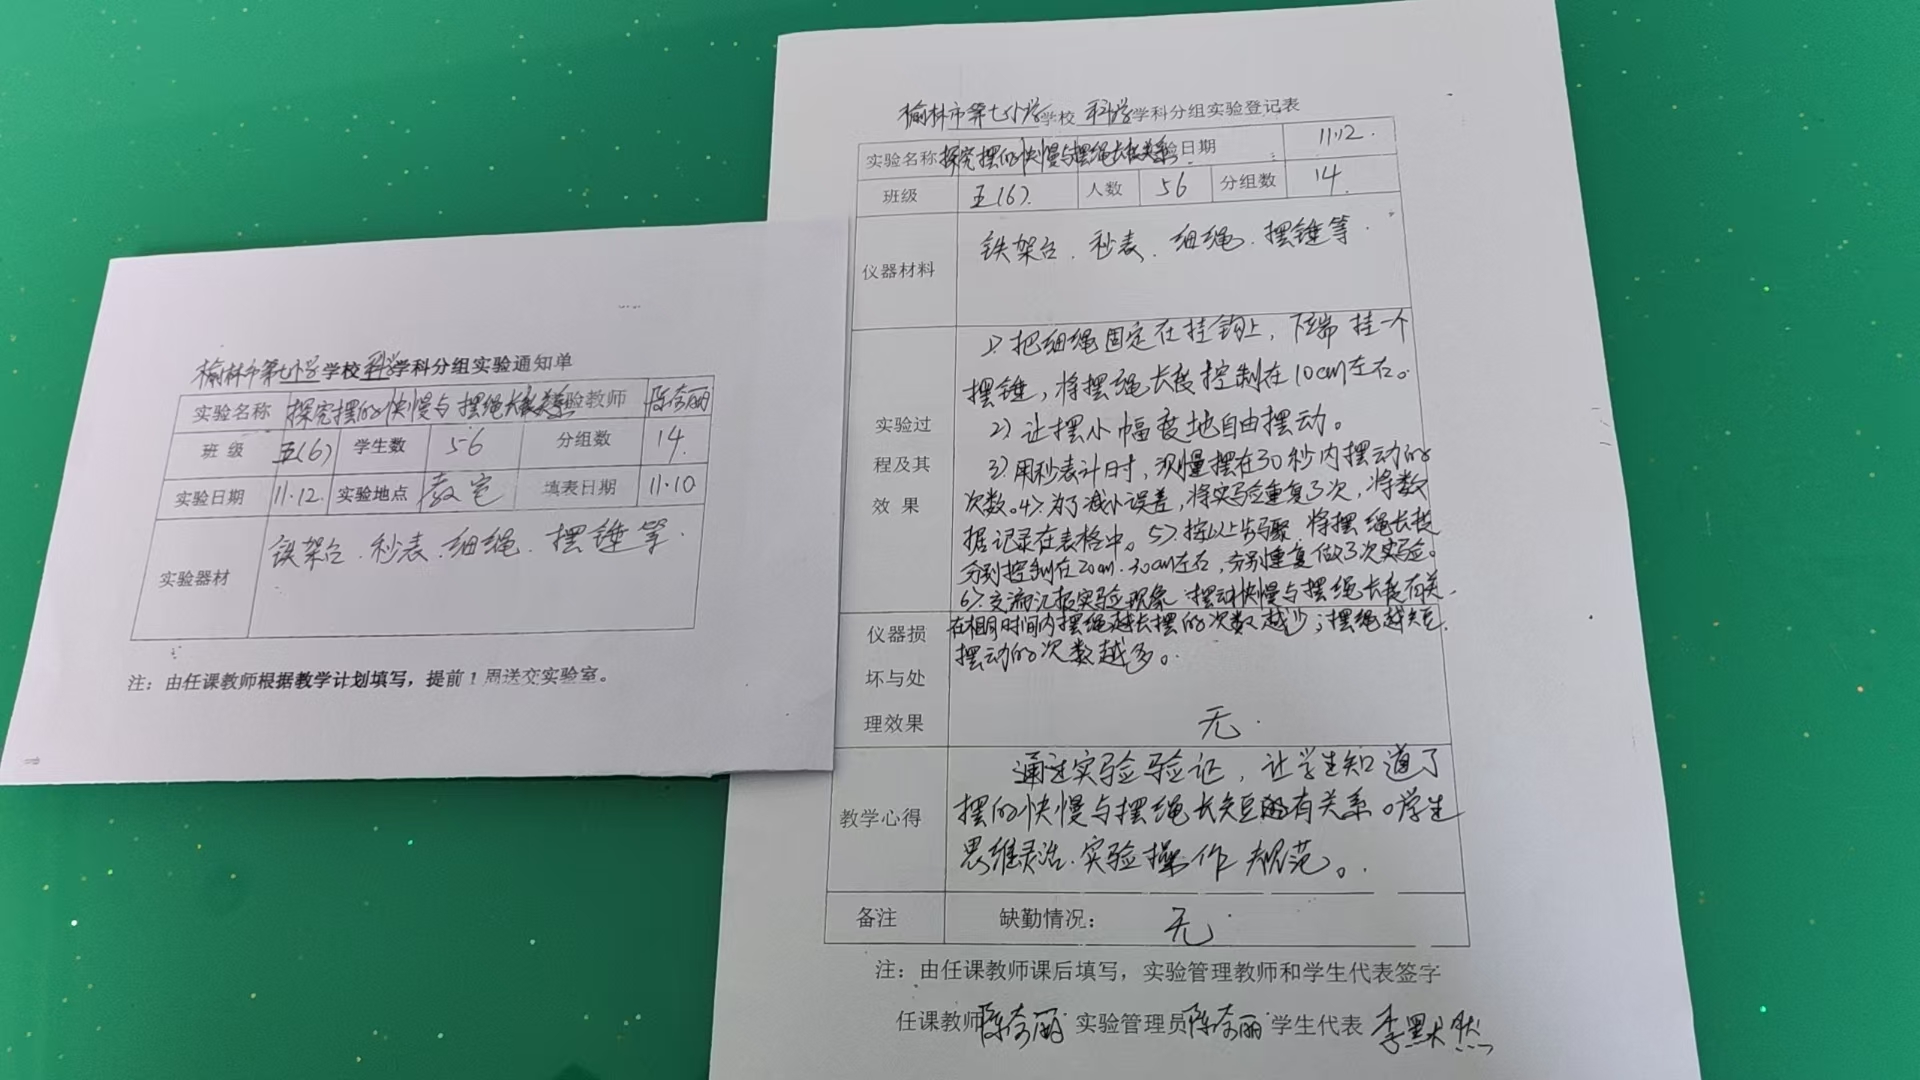 榆林市第七小学学校科学学科分组实验通知单
实验名称 探究摆的快慢与摆绳长度关系 验教师 陈奇丽
班 级 五(6) 学生数 56 分组数 14.
实验日期 11.12. 实验地点 教室 填表日期 11.10
实验器材 铁架台.秒表.细绳.摆锤等.
注：由任课教师根据教学计划填写，提前1周送交实验室。
榆林市第七小学学校 科学学科分组实验登记表
实验名称 探究摆的快慢与摆绳长度关系 验日期 11.12.
班级 五(6). 人数 56 分组数 14.
仪器材料 铁架台.秒表.细绳.摆锤等.
实验过
程及其
效 果
1>.把细绳固定在挂钩上，下端挂一个
摆锤，将摆绳长度控制在10cm左右。
2>让摆小幅度地自由摆动。
3>用秒表计时，测量摆在30秒内摆动的
次数。4>.为了减小误差，将实验重复3次，将数
据记录在表格中。5>.按以上步骤，将摆绳长度
分别控制在20cm.30cm左右，分别重复做了3次实验。
6>.交流汇报实验现象.摆动快慢与摆绳长度有关.
在相同时间内摆绳越长摆的次数越少；摆绳越短.
摆动的次数越多。
仪器损
坏与处
理效果
无.
教学心得
通过实验验证，让学生知道了
摆的快慢与摆绳长短有关系。学生
思维灵活.实验操作规范。.
备注 缺勤情况： 无.
注：由任课教师课后填写，实验管理教师和学生代表签字
任课教师陈奇丽 实验管理员陈奇丽 学生代表 李默然